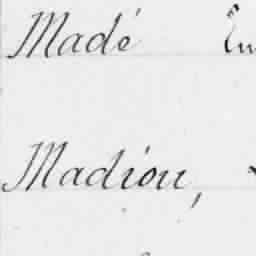 Madé
Madiou,